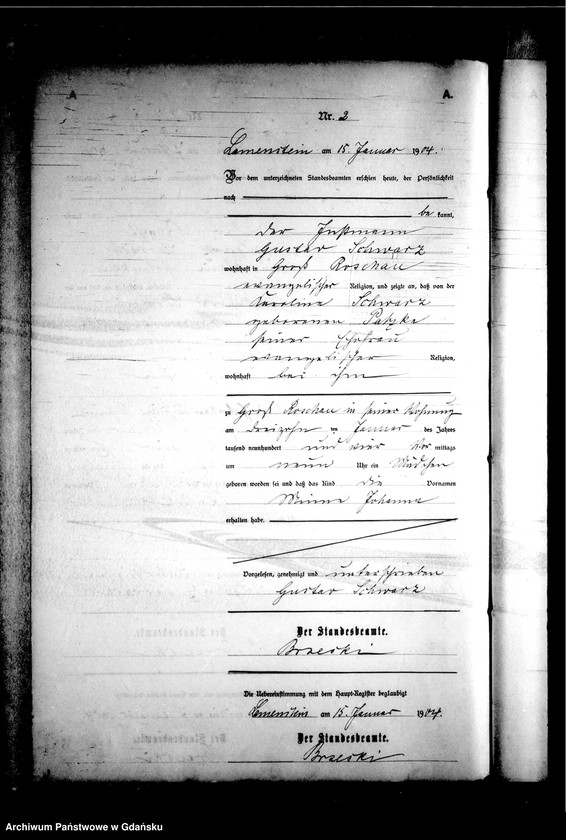 A
A.
Nr. 2
Lamenstein am 15. Januar 1904.
Vor dem unterzeichneten Standesbeamten erschien heute, der Persönlichkeit
nach
be kannt,
der Instmann
Gustav Schwarz
wohnhaft in Groß Roschau
evangelischer Religion, und zeigte an, daß von der
Caroline Schwarz
geborenen Patzke
seiner Ehefrau
evangelischer Religion,
wohnhaft bei ihm
zu Groß Roschau in seiner Wohnung
am dreizehn ten Januar des Jahres
tausend neunhundert und vier Vor mittags
um neun Uhr ein Mädchen
geboren worden sei und daß das Kind die Vornamen
Minna Johanna
erhalten habe.
Vorgelesen, genehmigt und unterschrieben
Gustav Schwarz
Der Standesbeamte.
Brzeski
Die Uebereinstimmung mit dem Haupt-Register beglaubigt
Lamenstein am 15. Januar 1904.
Der Standesbeamte.
Brzeski
Archiwum Państwowe w Gdańsku